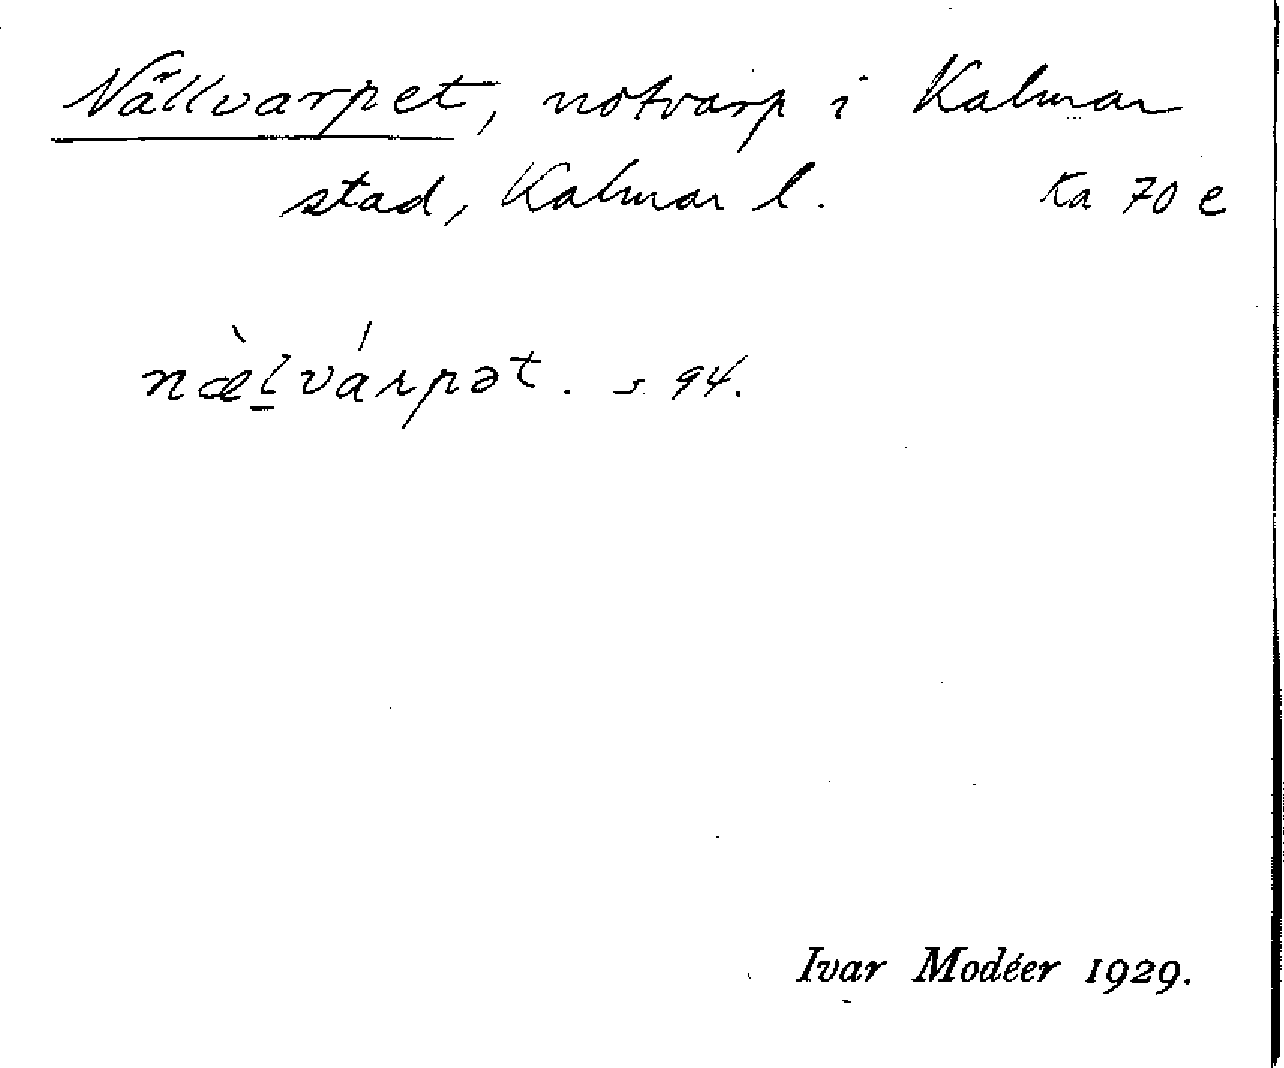 Nällvarpet, notvarp i Kalmar
stad, Kalmar l. Ka 70 e
næ̀l̲várpət. s 94.
Ivar Modéer 1929.